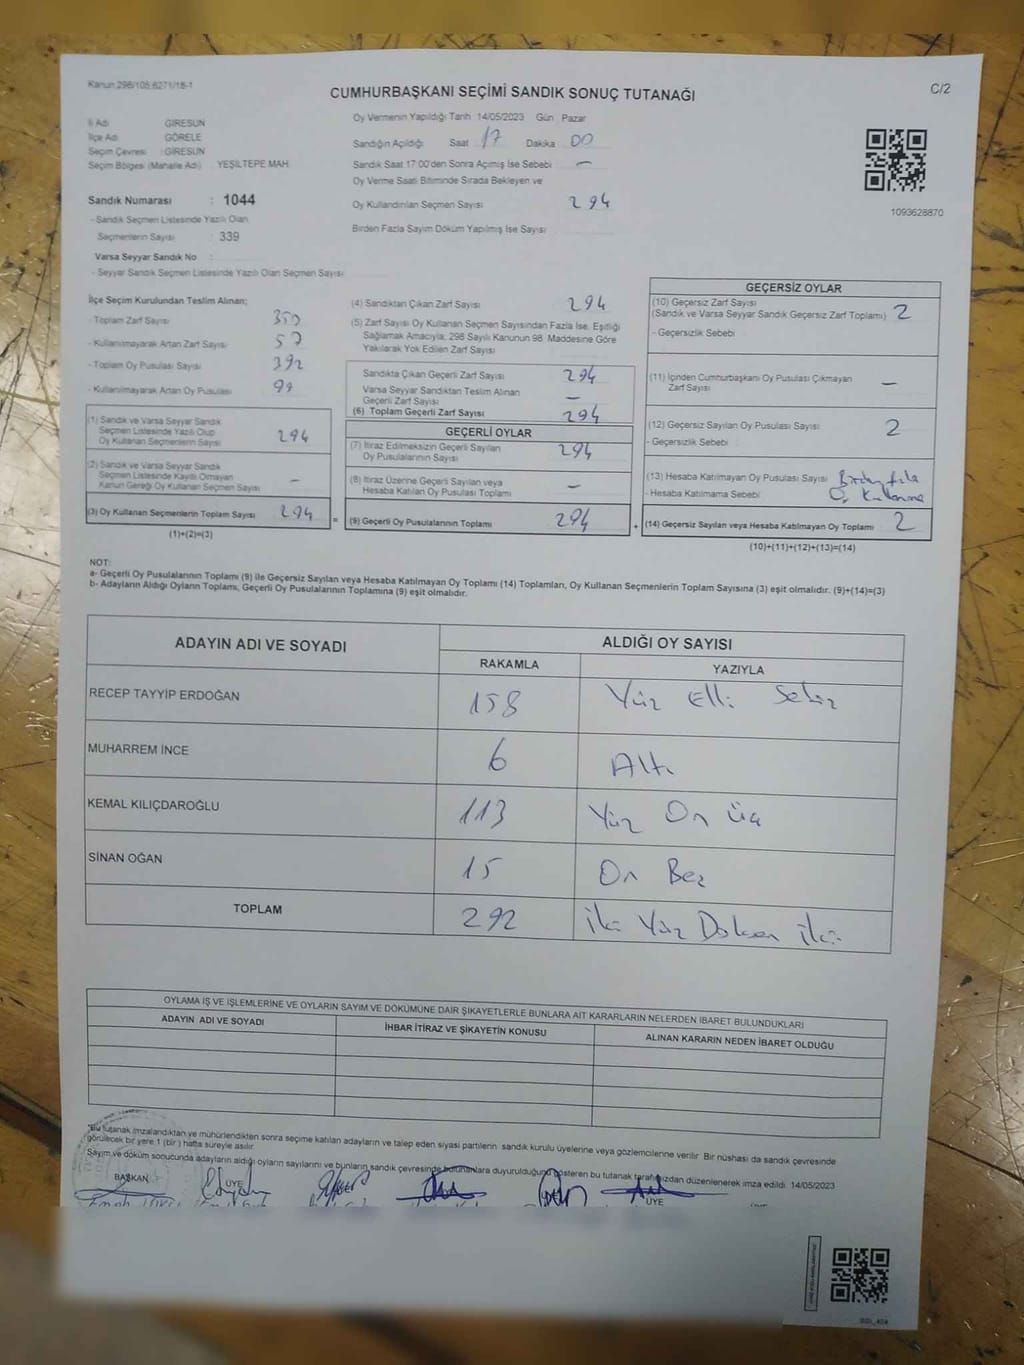 Kanun:298/105;6271/18-1
CUMHURBAŞKANI SEÇİMİ SANDIK SONUÇ TUTANAĞI
C/2
İl Adı : GİRESUN
İlçe Adı : GÖRELE
Seçim Çevresi : GİRESUN
Seçim Bölgesi (Mahalle Adı) : YEŞİLTEPE MAH.
Sandık Numarası : 1044
- Sandık Seçmen Listesinde Yazılı Olan
Seçmenlerin Sayısı : 339
Varsa Seyyar Sandık No :
- Seyyar Sandık Seçmen Listesinde Yazılı Olan Seçmen Sayısı:
Oy Vermenin Yapıldığı Tarih 14/05/2023 Gün Pazar
Sandığın Açıldığı Saat 17 Dakika 00
Sandık Saat 17:00'den Sonra Açılmış İse Sebebi : —
Oy Verme Saati Bitiminde Sırada Bekleyen ve
Oy Kullandırılan Seçmen Sayısı 294
Birden Fazla Sayım Döküm Yapılmış İse Sayısı
1093628870
İlçe Seçim Kurulundan Teslim Alınan;
- Toplam Zarf Sayısı
- Kullanılmayarak Artan Zarf Sayısı
- Toplam Oy Pusulası Sayısı : 392
- Kullanılmayarak Artan Oy Pusulası
(1) Sandık ve Varsa Seyyar Sandık
Seçmen Listesinde Yazılı Olup
Oy Kullanan Seçmenlerin Sayısı 294
(2) Sandık ve Varsa Seyyar Sandık
Seçmen Listesinde Kaydı Olmayan
Kanun Gereği Oy Kullanan Seçmen Sayısı —
(3) Oy Kullanan Seçmenlerin Toplam Sayısı 294
(1)+(2)=(3)
(4) Sandıktan Çıkan Zarf Sayısı 294
(5) Zarf Sayısı Oy Kullanan Seçmen Sayısından Fazla İse, Eşitliği
Sağlamak Amacıyla, 298 Sayılı Kanunun 98. Maddesine Göre
Yakılarak Yok Edilen Zarf Sayısı
Sandıkta Çıkan Geçerli Zarf Sayısı 294
Varsa Seyyar Sandıktan Teslim Alınan
Geçerli Zarf Sayısı —
(6) Toplam Geçerli Zarf Sayısı 294
GEÇERLİ OYLAR
(7) İtiraz Edilmeksizin Geçerli Sayılan
Oy Pusulalarının Sayısı 294
(8) İtiraz Üzerine Geçerli Sayılan veya
Hesaba Katılan Oy Pusulası Toplamı —
= (9) Geçerli Oy Pusulalarının Toplamı 294
GEÇERSİZ OYLAR
(10) Geçersiz Zarf Sayısı
(Sandık ve Varsa Seyyar Sandık Geçersiz Zarf Toplamı) 2
- Geçersizlik Sebebi :
(11) İçinden Cumhurbaşkanı Oy Pusulası Çıkmayan
Zarf Sayısı —
(12) Geçersiz Sayılan Oy Pusulası Sayısı 2
- Geçersizlik Sebebi :
(13) Hesaba Katılmayan Oy Pusulası Sayısı : Birden fazla
- Hesaba Katılmama Sebebi : Oy Kullanma
+ (14) Geçersiz Sayılan veya Hesaba Katılmayan Oy Toplamı 2
(10)+(11)+(12)+(13)=(14)
NOT:
a- Geçerli Oy Pusulalarının Toplamı (9) ile Geçersiz Sayılan veya Hesaba Katılmayan Oy Toplamı (14) Toplamları, Oy Kullanan Seçmenlerin Toplam Sayısına (3) eşit olmalıdır. (9)+(14)=(3)
b- Adayların Aldığı Oyların Toplamı, Geçerli Oy Pusulalarının Toplamına (9) eşit olmalıdır.
ADAYIN ADI VE SOYADI
ALDIĞI OY SAYISI
RAKAMLA YAZIYLA
RECEP TAYYİP ERDOĞAN 158 Yüz Elli Sekiz
MUHARREM İNCE 6 Altı
KEMAL KILIÇDAROĞLU 113 Yüz On Üç
SİNAN OĞAN 15 On Beş
TOPLAM 292 İki Yüz Doksan İki
OYLAMA İŞ VE İŞLEMLERİNE VE OYLARIN SAYIM VE DÖKÜMÜNE DAİR ŞİKAYETLERLE BUNLARA AİT KARARLARIN NELERDEN İBARET BULUNDUKLARI
ADAYIN ADI VE SOYADI İHBAR İTİRAZ VE ŞİKAYETİN KONUSU ALINAN KARARIN NEDEN İBARET OLDUĞU
*Bu tutanak imzalandıktan ve mühürlendikten sonra seçime katılan adayların ve talep eden siyasi partilerin sandık kurulu üyelerine veya gözlemcilerine verilir. Bir nüshası da sandık çevresinde
görülecek bir yere 1 (bir) hafta süreyle asılır.
Sayım ve döküm sonucunda adayların aldığı oyların sayılarını ve bunların sandık çevresinde bulunanlara duyurulduğunu gösteren bu tutanak tarafımızdan düzenlenerek imza edildi. 14/05/2023
BAŞKAN ÜYE ÜYE